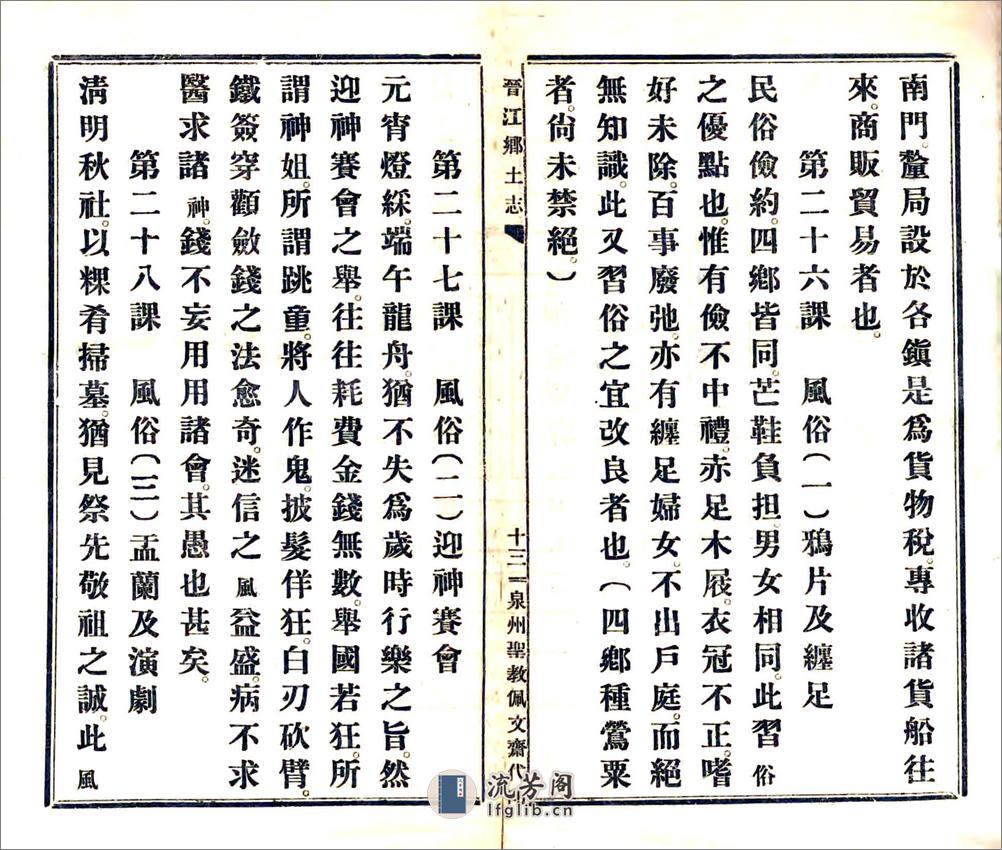 南門。釐局設於各鎭是爲貨物稅。專收諸貨船往
來。商販貿易者也。
第二十六課　風俗(一)鴉片及纏足
民俗儉約。四鄕皆同。芒鞋負担。男女相同。此習俗
之優點也。惟有儉不中禮。赤足木屐。衣冠不正。嗜
好未除。百事廢弛。亦有纏足婦女。不出戶庭。而絕
無知識。此又習俗之宜改良者也。(四鄕種鶯粟
者。尙未禁絕。)
晉江鄕土志
十三
泉州聖教佩文齋代
第二十七課　風俗(二)迎神賽會
元宵燈綵。端午龍舟。猶不失爲歲時行樂之旨。然
迎神賽會之舉。往往耗費金錢無數。舉國若狂。所
謂神姐。所謂跳童。將人作鬼。披髮佯狂。白刃砍臂。
鐵簽穿顴。斂錢之法愈奇。迷信之風益盛。病不求
醫求諸神。錢不妄用用諸會。其愚也甚矣。
第二十八課　風俗(三)盂蘭及演劇
淸明秋社。以粿肴掃墓。猶見祭先敬祖之誠。此風
流芳阁
lfglib.com